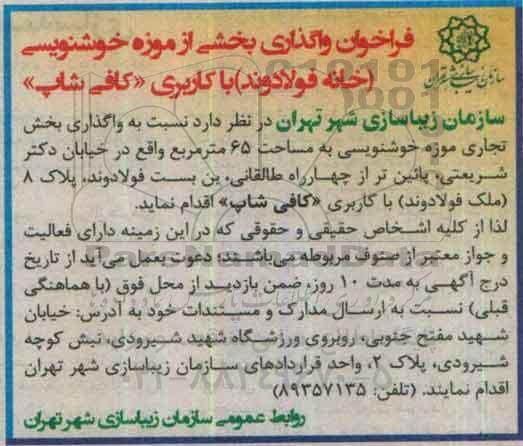 فراخوان واگذاری بخشی از موزه خوشنویسی
(خانه فولادوند) با کاربری «کافی شاپ»
سازمان زیباسازی شهر تهران
سازمان زیباسازی شهر تهران در نظر دارد نسبت به واگذاری بخش
تجاری موزه خوشنویسی به مساحت ۶۵ مترمربع واقع در خیابان دکتر
شریعتی، پائین تر از چهارراه طالقانی، بن بست فولادوند، پلاک ۸
(ملک فولادوند) با کاربری «کافی شاپ» اقدام نماید.
لذا از کلیه اشخاص حقیقی و حقوقی که در این زمینه دارای فعالیت
و جواز معتبر از صنوف مربوطه می‌باشند؛ دعوت بعمل می‌آید از تاریخ
درج آگهی به مدت ۱۰ روز، ضمن بازدید از محل فوق (با هماهنگی
قبلی) نسبت به ارسال مدارک و مستندات خود به آدرس: خیابان
شهید مفتح جنوبی، روبروی ورزشگاه شهید شیرودی، نبش کوچه
شیرودی، پلاک ۲، واحد قراردادهای سازمان زیباسازی شهر تهران
اقدام نمایند. (تلفن: ۸۹۳۵۷۱۳۵)
روابط عمومی سازمان زیباسازی شهر تهران